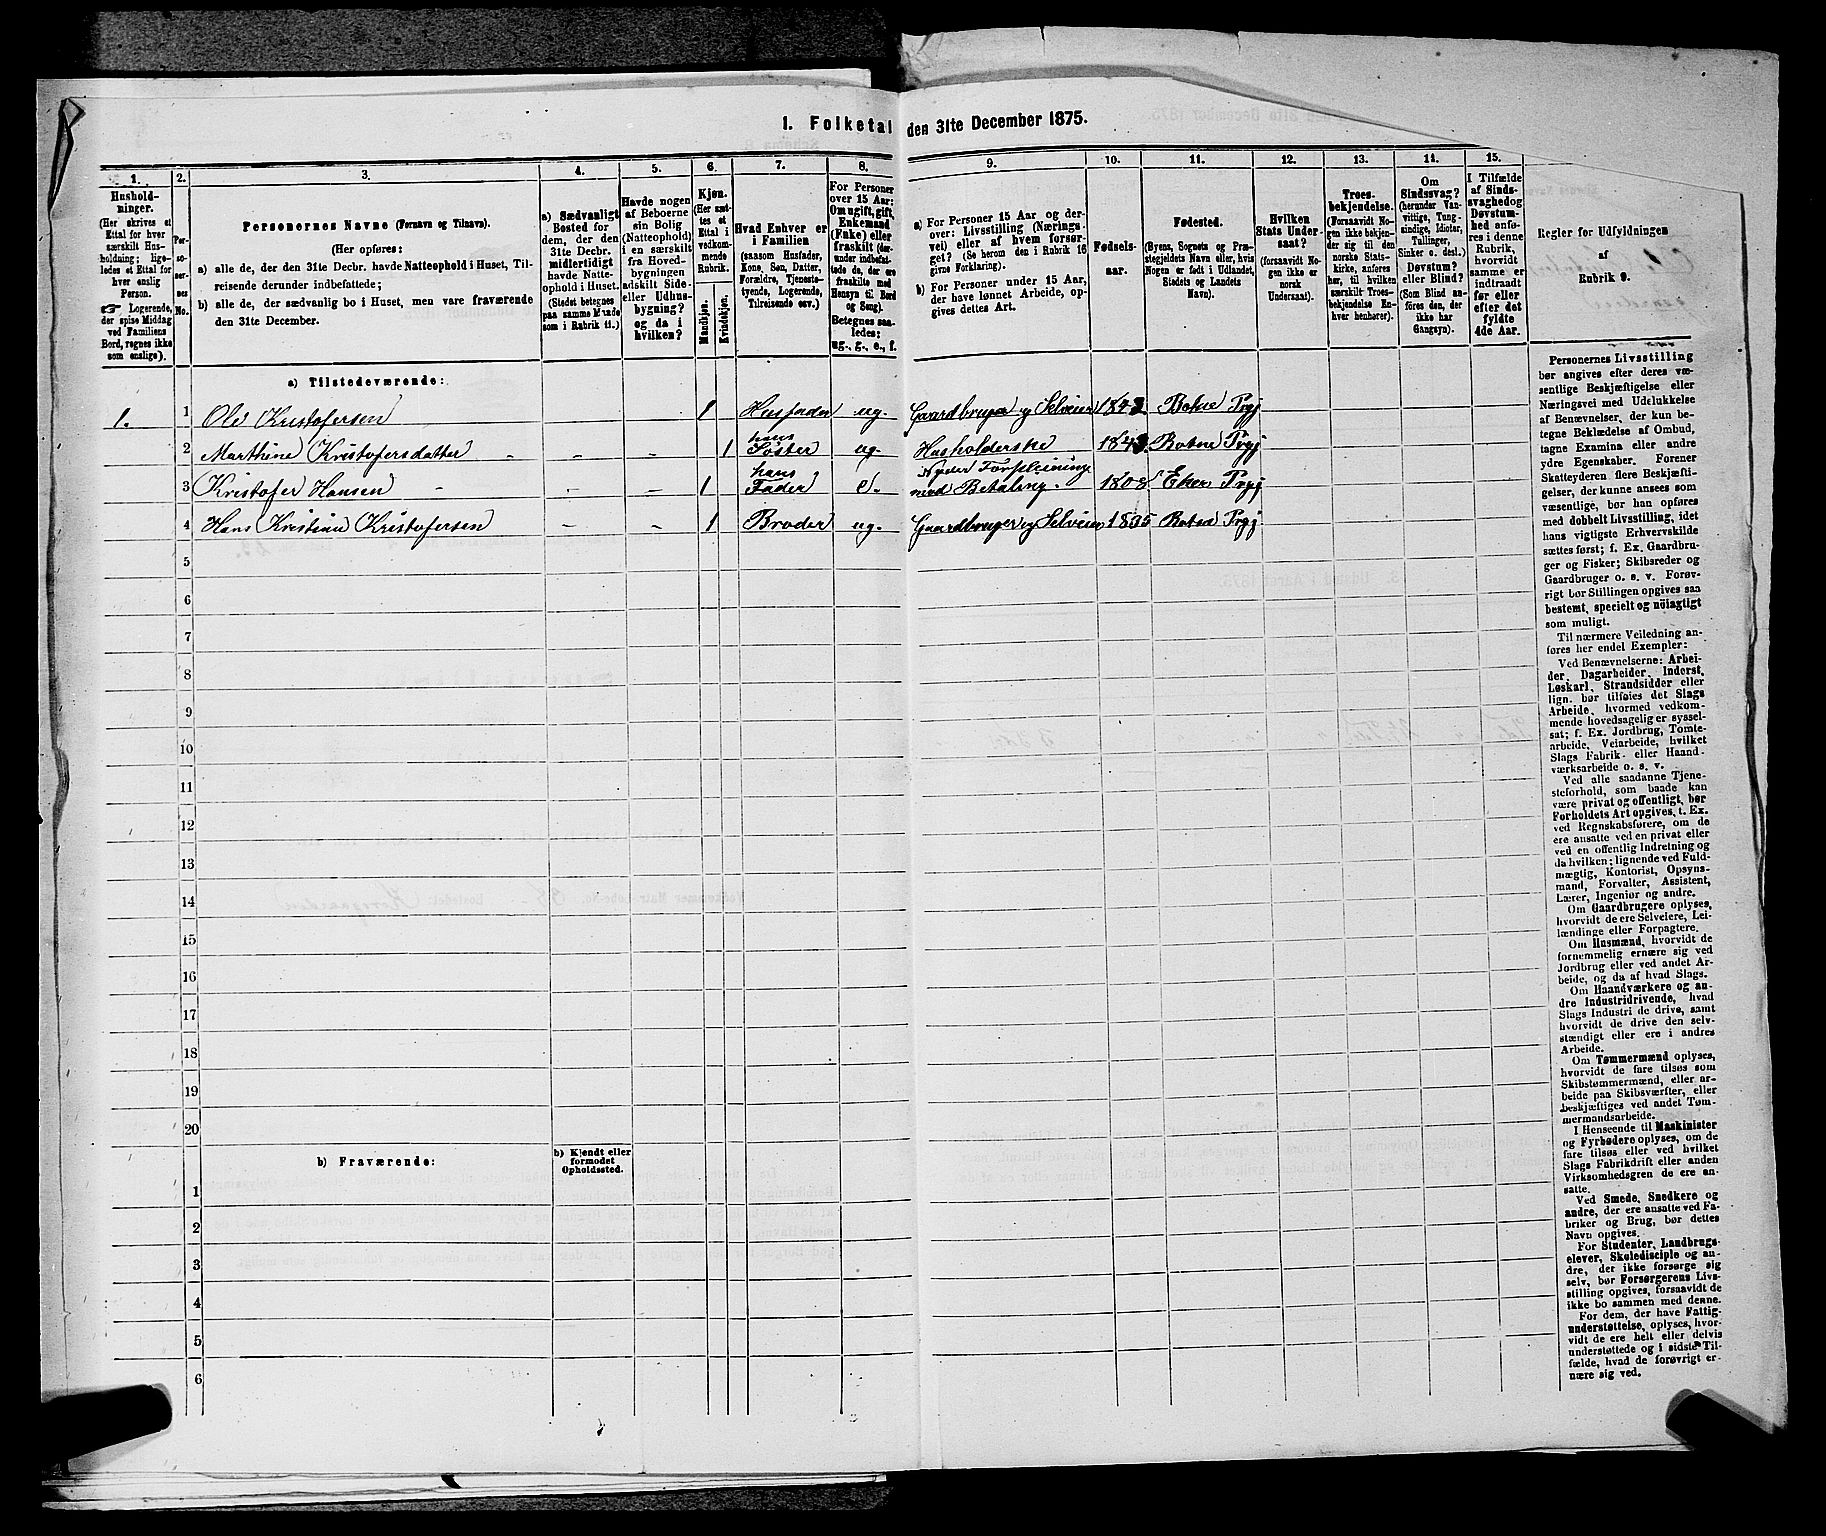 1. Folketal den 31te December 1875.
1. 2. 3. 4. 5. 6. 7. 8. 9. 10. 11. 12. 13. 14. 15.
Hushold-
ninger.
(Her skrives et
Ettal for hver
særskilt Hus-
holdning; lige-
ledes et Ettal for
hver enslig
Person.
☞ Logerende,
der spise Middag
ved Familiens
Bord, regnes ikke
som enslige).
Per-
so-
ner-
nes
No.
Personernes Navne (Fornavn og Tilnavn).
(Her opføres:
a) alle de, der den 31te Decbr. havde Natteophold i Huset, Til-
reisende derunder indbefattede;
b) alle de, der sædvanlig bo i Huset, men vare fraværende
den 31te December.
a) Sædvanligt
Bosted for
dem, der den
31te Decbr.
midlertidigt
havde Natte-
ophold i Huset.
(Stedet betegnes
paa samme Maade
som i Rubrik 11.)
Havde nogen
af Beboerne
sin Bolig
(Natteophold)
i en særskilt
fra Hoved-
bygningen
adskilt Side-
eller Udhus-
bygning?
og da i
hvilken?
Kjøn.
(Her sæt-
tes et
Ettal i
vedkom-
mende
Rubrik.
Mandkjøn.
Kvindekjøn.
Hvad Enhver er
i Familien
(saasom Husfader,
Kone, Søn, Datter,
Forældre, Tjeneste-
tyende, Logerende,
Tilreisende osv.)
For Personer
over 15 Aar:
Om ugift, gift,
Enkemand
(Enke) eller
fraskilt (der-
under indbefat-
tede de, der ere
fraskilte med
Hensyn til Bord
og Seng).
Betegnes saa-
ledes:
ug., g., e., f.
a) For Personer 15 Aar og der-
over: Livsstilling (Nærings-
vei) eller af hvem forsør-
get. (Se herom den i Rubrik 16
givne Forklaring).
b) For Personer under 15 Aar,
der have lønnet Arbeide, op-
gives dettes Art.
Fødsels-
aar.
Fødested.
(Byens, Sognets og Præ-
stegjeldets Navn eller, hvis
Nogen er født i Udlandet,
Stedets og Landets
Navn).
Hvilken
Stats Under-
saat?
(forsaavidt No-
gen ikke er
norsk
Undersaat).
Troes-
bekjendelse.
(Forsaavidt No-
gen ikke bekjen-
der sig til den
norske Stats-
kirke, anføres
her, til hvilken
særskilt Troes-
bekjendelse En-
hver henhører).
Om
Sindssvag?
(herunder Van-
vittige, Tung-
sindige, Idioter,
Tullinger,
Sinker o. desl.)
Døvstum?
eller Blind?
(Som Blind an-
føres den, der
ikke har
Gangsyn).
I Tilfælde
af Sinds-
svaghed og
Døvstum-
hed anfø-
res i denne
Rubrik,
hvorvidt
samme er
indtraadt
før eller
efter det
fyldte
4de Aar.
Regler for Udfyldningen
af
Rubrik 9.
a) Tilstedeværende:
1. 1 Ole Kristofersen 1 Husfader ug. Gaardbruger og Selveier 1842 Botne Prgj
2 Marthine Kristofersdatter - - 1 hans Søster ug. Husholderske 1843 Botne Prgj
3 Kristofer Hansen - - - 1 hans Fader e. Nyder Forpleining mod Betaling. 1808 Eker Prgj
4 Hans Kristian Kristofersen - - 1 Broder ug. Gaardbruger og Selveier 1835 Botne Prgj
5
6
7
8
9
10
11
12
13
14
15
16
17
18
19
20
b) Fraværende:
b) Kjendt eller
formodet
Opholdssted.
1
2
3
4
5
6
Personernes Livsstilling
bør angives efter deres væ-
sentlige Beskjæftigelse eller
Næringsvei med Udelukkelse
af Benævnelser, der kun be-
tegne Beklædelse af Ombud,
tagne Examina eller andre
ydre Egenskaber. Forener
Skatteyderen flere Beskjæfti-
gelser, der kunne ansees som
væsentlige, bør han opføres
med dobbelt Livsstilling, idet
hans vigtigste Erhvervskilde
sættes først; f. Ex. Gaardbru-
ger og Fisker; Skibsreder og
Gaardbruger o. s. v. Forøv-
rigt bør Stillingen opgives saa
bestemt, specielt og nøiagtigt
som muligt.
Til nærmere Veiledning an-
føres her endel Exempler:
Ved Benævnelserne: Arbei-
der, Dagarbeider, Inderst,
Løskarl, Strandsidder eller
lign. bør tilføies det Slags
Arbeide, hvormed vedkom-
mende hovedsagelig er syssel-
sat; f. Ex. Jordbrug, Tomte-
arbeide, Veiarbeide, hvilket
Slags Fabrik- eller Haand-
værksarbeide o. s. v.
Ved alle saadanne Tjene-
steforhold, som baade kan
være privat og offentligt, bør
Forholdets Art opgives, t. Ex.
ved Regnskabsførere, om de
ere ansatte ved en privat eller
ved en offentlig Indretning og
da hvilken; lignende ved Fuld-
mægtig, Kontorist, Opsyns-
mand, Forvalter, Assistent,
Lærer, Ingeniør og andre.
Om Gaardbrugere oplyses,
hvorvidt de ere Selveiere, Lei-
lændinge eller Forpagtere.
Om Husmænd, hvorvidt de
fornemmelig ernære sig ved
Jordbrug eller ved andet Ar-
beide, og da af hvad Slags.
Om Haandværkere og an-
dre Industridrivende, hvad
Slags Industri de drive, samt
hvorvidt de drive den selv-
stændigt eller ere i andres
Arbeide.
Om Tømmermænd oplyses,
hvorvidt de fare tilsøs som
Skibstømmermænd, eller ar-
beide paa Skibsværfter, eller
beskjæftiges ved andet Tøm-
mermandsarbeide.
I Henseende til Maskinister
og Fyrbødere oplyses, om de
fare tilsøs eller ved hvilket
Slags Fabrikdrift eller anden
Virksomhedsgren de ere an-
satte.
Ved Smede, Snedkere og
andre, der ere ansatte ved Fa-
briker og Brug, bør dettes
Navn opgives.
For Studenter, Landbrugs-
elever, Skoledisciple og an-
dre, der ikke forsørge sig
selv, bør Forsørgerens Livs-
stilling opgives, forsaavidt de
ikke bo sammen med denne.
For dem, der have Fattig-
understøttelse, oplyses, hvor-
vidt de ere helt eller delvis
understøttede og i sidste Til-
fælde, hvad de forøvrigt er-
nære sig ved.